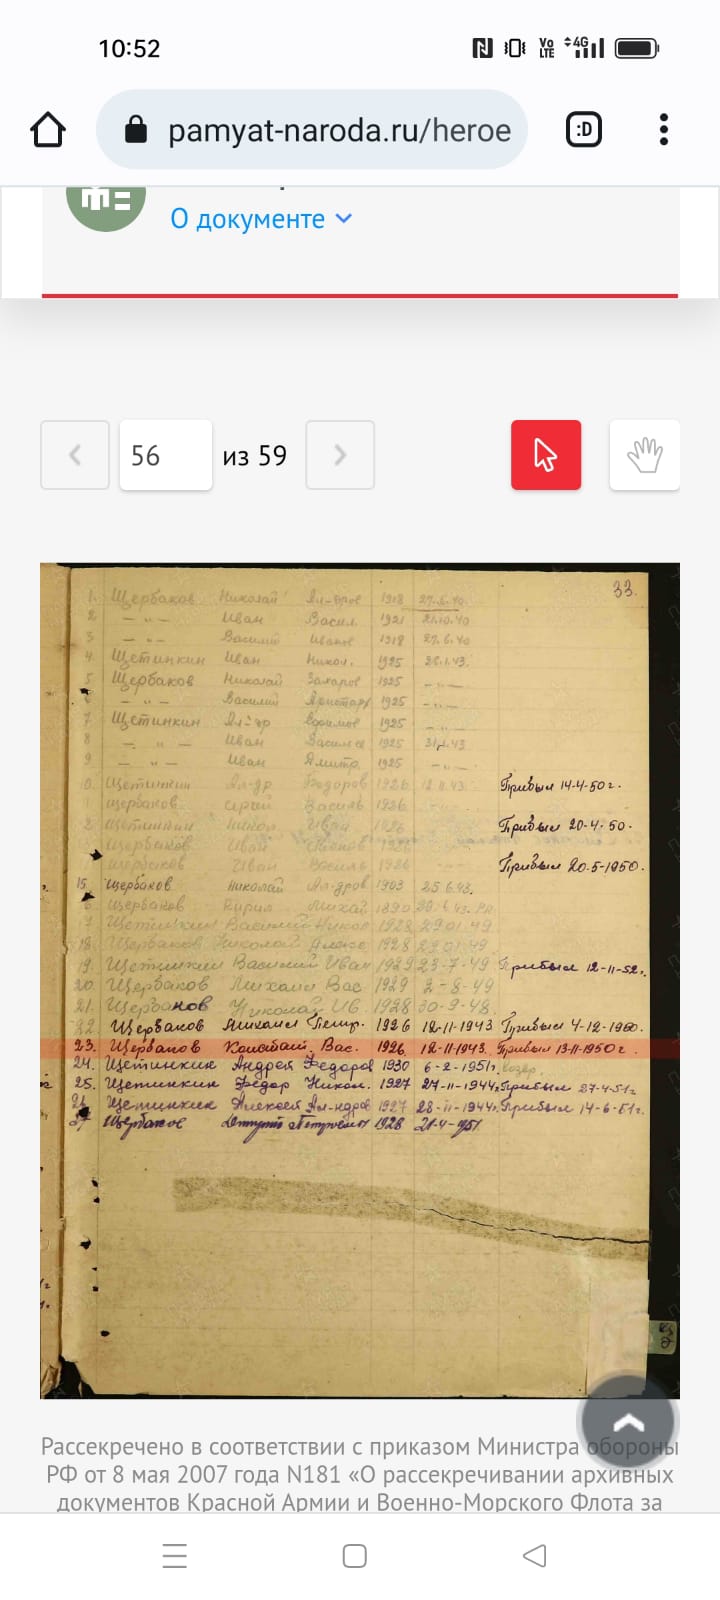 10:52
Vo LTE 4G
pamyat-naroda.ru/heroe :D
О документе
56 из 59
33.
1. Щербаков Николай Ал-дров 1918 27.6.40.
2 — „ — Иван Васил. 1921 21.10.40
3 — „ — Василий Иванов 1918 27.6.40
4. Щетинкин Иван Никол. 1925 26.1.43.
5 Щербаков Николай Захаров 1925 — „ —
6 — „ — Василий Аристарх 1925
7 Щетинкин Ал-др Ефимов 1925 — „ —
8 — „ — Иван Василье 1925 31.1.43
9 — „ — Иван Дмитр. 1925 — „ —
10. Щетинкин Ал-др Федоров 1926 12.11.43. Прибыл 14-4-50 г.
щербаков Сергей Василь 1926
2 Щетинкин Никол. Иван 1926 Прибыл 20-4-50.
Щербаков Иван
щербаков Иван Василь 1926 Прибыл 20.5-1950.
15. Щербаков Николай Ал-дров 1903 25.6.43.
6 Щербаков Кирил Михай 1890
7 Щетинкин Василий Никол 1928 29.01.49
18. Щербаков Николай Алекс 1928 29.01.49
19. Щетинкин Василий Иван 1929 23-7-49 Прибыл 12-11-52 г.
20. Щербаков Михаил Вас 1929 2-8-49
21. Щербаков Николай Ив. 1928 30-9-48.
22. Щербаков Михаил Петр. 1926 12-11-1943 Прибыл 4-12-1950.
23. Щербаков Констант. Вас. 1926 12-11-1943. Прибыл 13-11-1950 г.
24. Щетинкин Андрей Федоров 1930 6-2-1951 г.
25. Щетинкин Федор Никол. 1927 24-11-1944 г. Прибыл 27-4-51 г
26. Щетинкин Алексей Ал-ндров 1927 28-11-1944 г. Прибыл 14-6-51 г.
27 Щербаков Дмитрий Петрович 1928 21-4-951
Рассекречено в соответствии с приказом Министра обороны
РФ от 8 мая 2007 года N181 «О рассекречивании архивных
документов Красной Армии и Военно-Морского Флота за